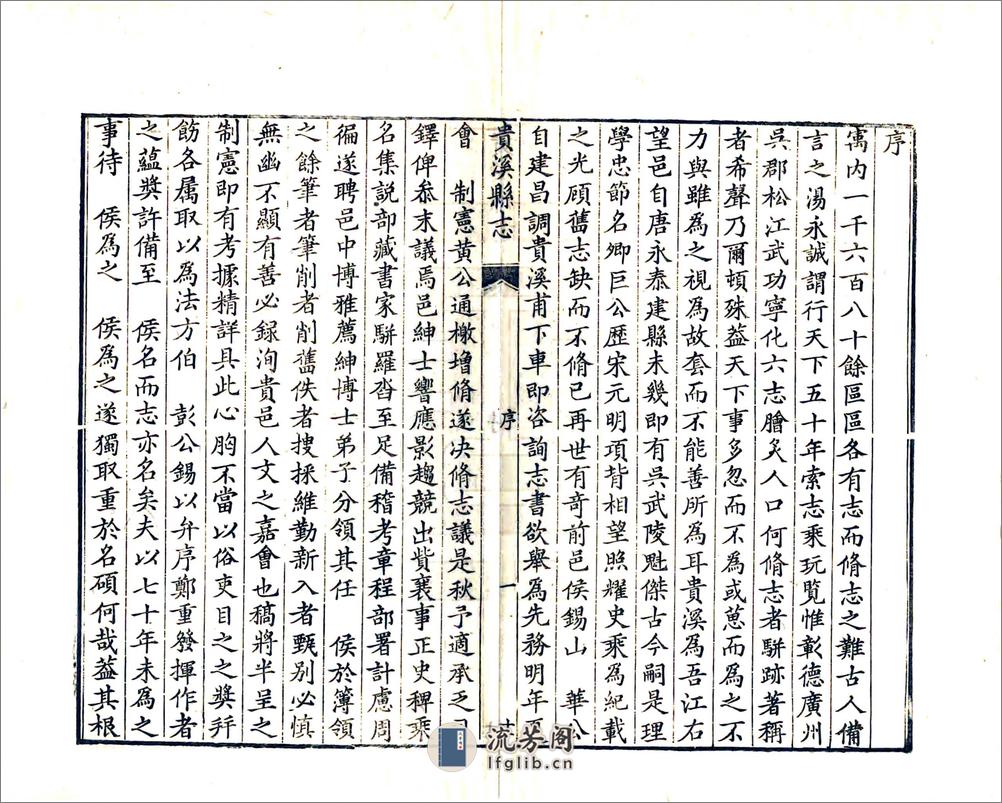 序
寓内一千六百八十餘區區各有志而脩志之難古人備
言之湯永誠謂行天下五十年索志乘玩覽惟彰德廣州
吳郡松江武功寧化六志膾炙人口何脩志者駢跡著稱
者希聲乃爾頓殊葢天下事多忽而不為或葸而為之不
力與雖為之視為故套而不能善所為耳貴溪為吾江右
望邑自唐永泰建縣未幾即有吳武陵魁傑古今嗣是理
學忠節名卿巨公歷宋元明項背相望照耀史乘為紀載
之光顧舊志缺而不脩已再世有奇前邑侯錫山 華公
自建昌調貴溪甫下車即咨詢志書欲舉為先務明年
貴溪縣志 序 一
會 制憲黃公通檄增脩遂决脩志議是秋予適承乏
鐸俾叅末議焉邑紳士響應影趨競出貲襄事正史稗乘
名集說部藏書家駢羅沓至足備稽考章程部署計慮周
徧遂聘邑中博雅薦紳博士弟子分領其任 侯於簿領
之餘筆者筆削者削舊佚者搜採維勤新入者甄别必慎
無幽不顯有善必録洵貴邑人文之嘉會也稿將半呈之
制憲即有考據精詳具此心胸不當以俗吏目之之獎幷
飭各属取以為法方伯 彭公錫以弁序鄭重發揮作者
之藴獎許備至 侯名而志亦名矣夫以七十年未為之
事待 侯為之 侯為之遂獨取重於名碩何哉葢其根
流芳阁
lfglib.cn